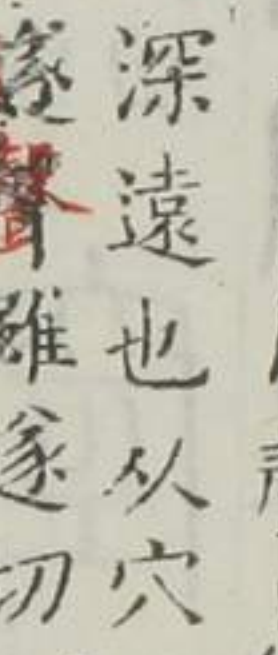 深遠也从穴
遂聲雖遂切